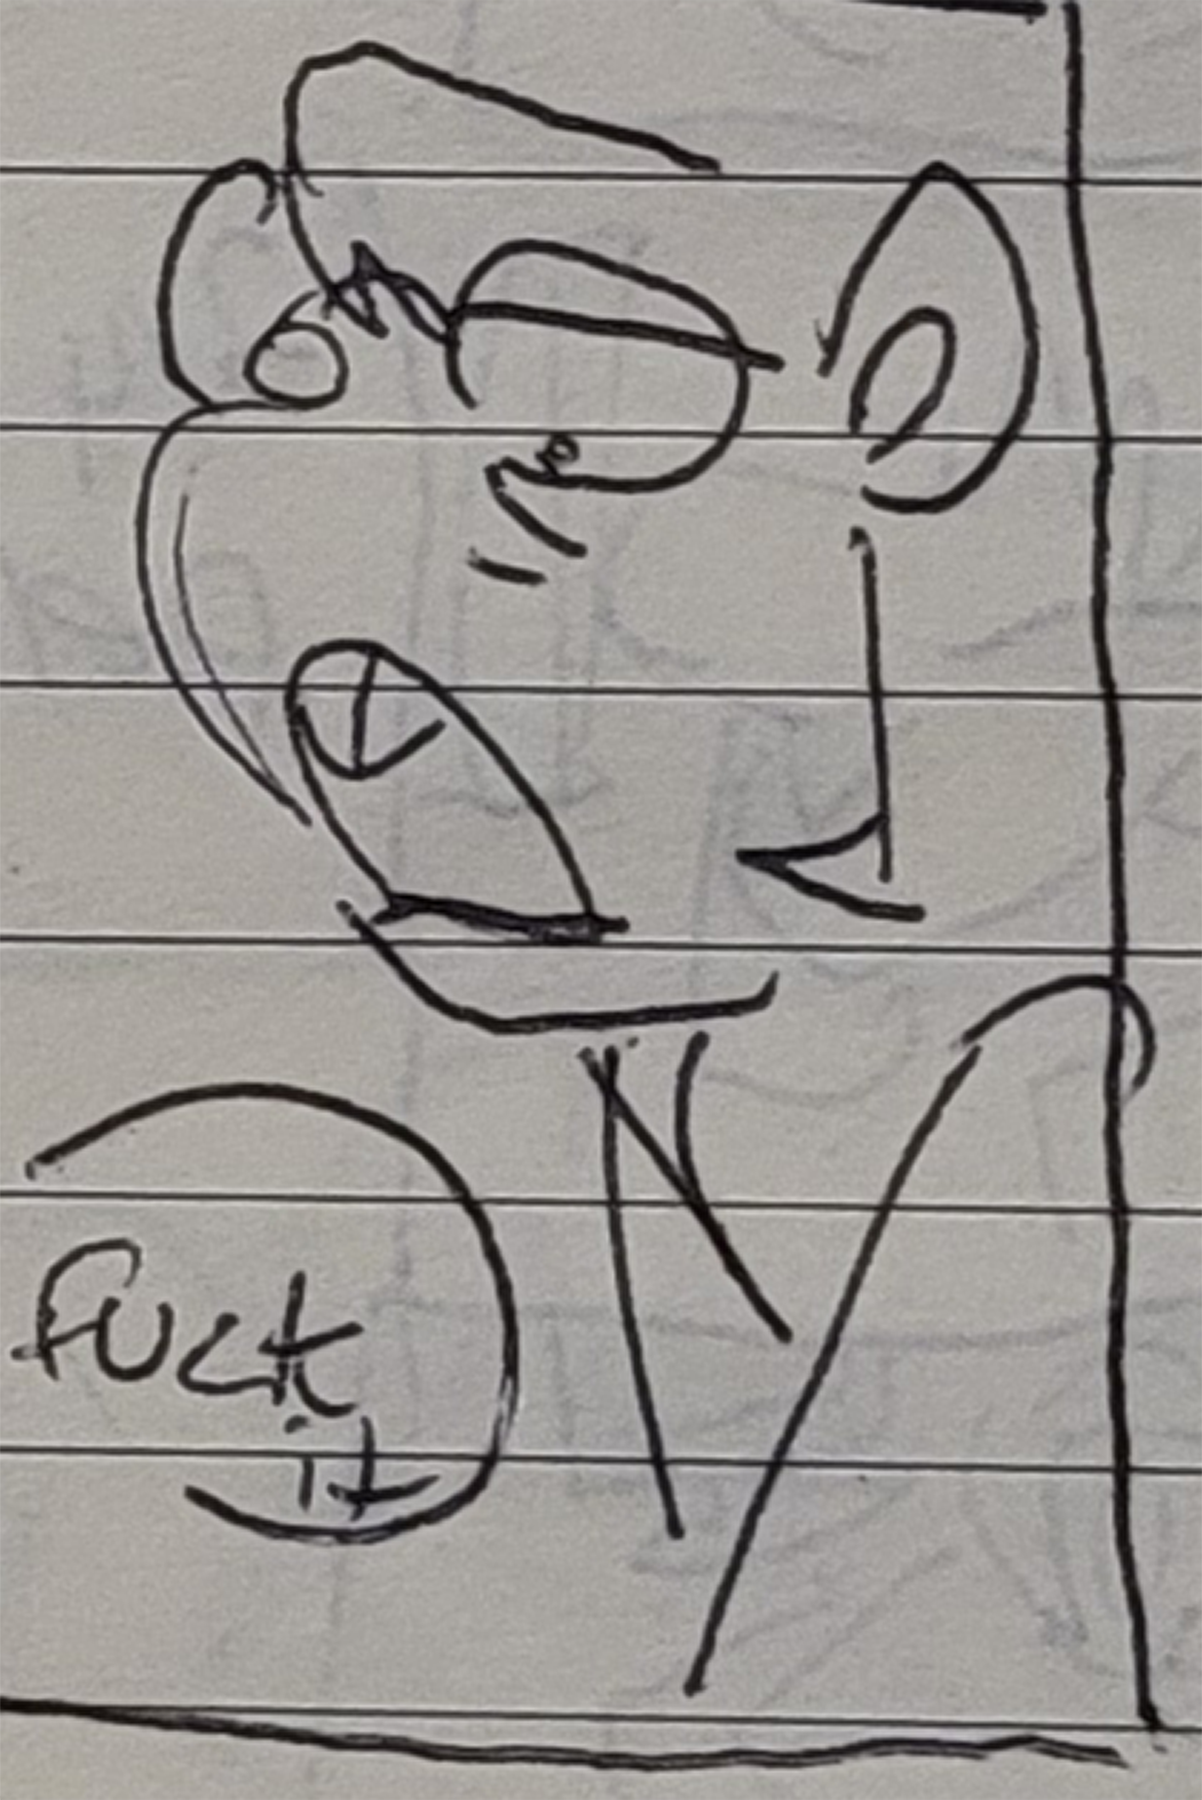 Fuck
it